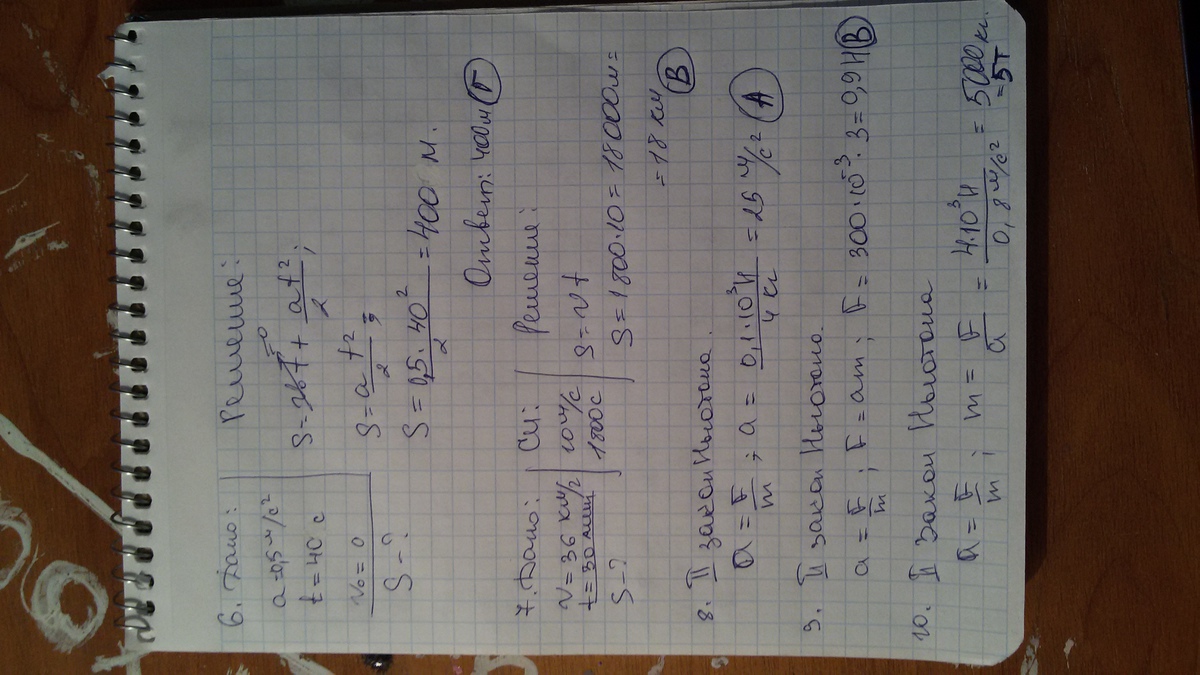 6. Дано:
a=0,5 м/с²
t=40 с
v₀=0
S-?
Решение:
S=v₀t + at²/2;
=0
S=a t²/2;
S=0,5·40²/2=400 м.
Ответ: 400м Г
7. Дано:
v=36 км/
t=30 мин
S-?
Си:
10 м/с
1800 с
Решение:
S=vt
S=1800·10=18000м=
=18 км
В
8. II закон Ньютона.
a=F/m; a=0,1·10³Н/4 кг=25 м/с² А
9. II закон Ньютона.
a=F/m; F=am; F=300·10⁻³·3=0,9Н В
10. II Закон Ньютона
a=F/m; m=F/a=4·10³Н/0,8 м/с²=5000кг.
=5т